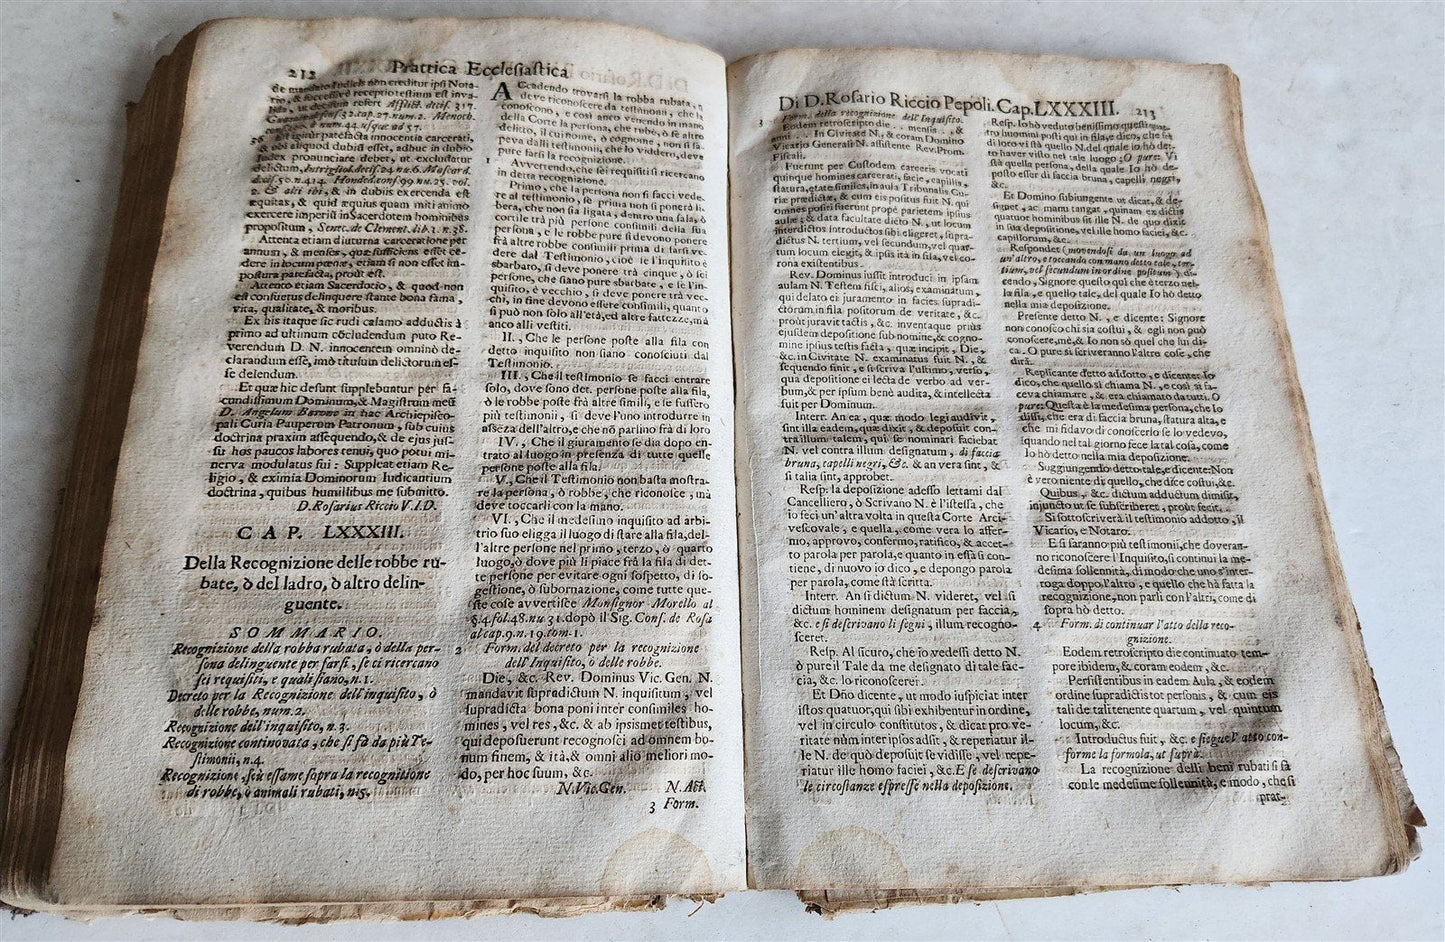 212 Prattica Ecclesiastica
de mandato Iudicis non creditur ipsi Nota-
rio, & successivè receptio testium est inva-
lida, in decisum refert Afflict. decis. 317.
num. 44. usque ad 57.
igitur patefacta innocentia carcerati,
& ubi aliquod dubiū esset, adhuc in dubio
Iudex pronunciare debet, ut excludatur
delictum, Intrigliol. decis. 24. nu. 6. Moscard.
decis. 50. n. 414. Honded. cons. 99. nu. 25. vol.
2. & alii ibi, & in dubiis exercenda est
æquitas, & quid æquius quam miti animo
exercere imperiū in Sacerdotem hominibus
propositum, Senec. de Clement. lib. 1. n. 38.
Attenta etiam diuturna carceratione per
annum, & menses, quæ sufficiens esset ce-
dere in locum pœnæ, etiam si non esset im-
postura patefacta, proùt est.
Attento etiam Sacerdotio, & quod non
est consuetus delinquere stante bona fama,
vita, qualitate, & moribus.
Ex his itaque sic rudi calamo adductis à
primo ad ultimum cōcludendum puto Re-
verendum D. N. innocentem omninò de-
clarandum esse, imò titulum delictorum es-
se delendum.
Et quæ hic desunt supplebuntur per fa-
cundissimum Dominum, & Magistrum meū
D. Angelum Barone in hac Archiepisco-
pali Curia Pauperum Patronum, sub cuius
doctrina praxim assequendo, & de ejus jus-
su hos paucos labores tenui, quo potui mi-
nerva modulatus fui: Suppleat etiam Re-
ligio, & eximia Dominorum Iudicantium
doctrina, quibus humillibus me submitto.
D. Rosarius Riccio V.I.D.
CAP. LXXXIII.
Della Recognizione delle robbe ru-
bate, ò del ladro, ò altro delin-
quente.
SOMMARIO.
Recognizione della robba rubata, ò della per-
sona delinquente per farsi, se ci ricercano
sei requisiti, e quali siano, n. 1.
Decreto per la Recognizione dell'inquisito, ò
delle robbe, num. 2.
Recognizione dell'inquisito, n. 3.
Recognizione continovata, che si fà da più Te-
stimonii, n. 4.
Recognizione, seù essame sopra la recognizione
di robbe, ò animali rubati, n. 5.
Accadendo trovarsi la robba rubata, e
deve riconoscere da testimonii, che la
conoscono, e così anco venendo in mano
della Corte la persona, che rubò, ò fè altro
delitto, il cui nome, ò cognome, non si sà
peva dalli testimonii, che lo viddero, deve
pure farsi la recognizione.
1 Avvertendo, che sei requisiti si ricercano
in detta recognizione.
Primo, che la persona non si facci vede-
re al testimonio, se prima non si ponerà li-
bera, che non sia ligata, dentro una sala, ò
cortile trà più persone consimili della sua
persona, e le robbe pure si devono ponere
frà altre robbe consimili prima di farsi ve-
dere dal Testimonio, cioè se l'inquisito è
sbarbato, si deve ponere trà cinque, ò sei
persone, che siano pure sbarbate, e se l'in-
quisito, è vecchio, si deve ponere trà vec-
chi, in fine devono essere consimili, quanto
si può non solo all'età, ed altre fattezze, mà
anco alli vestiti.
II., Che le persone poste alla fila con
detto inquisito non siano conosciuti dal
Testimonio.
III., Che il testimonio se facci entrare
solo, dove sono det. persone poste alla fila,
ò le robbe poste frà altre simili, e se fussero
più testimonii, si deve l'uno introdurre in
assēza dell'altro, e che nō parlino frà di loro
IV., Che il giuramento se dia dopo en-
trato al luogo in presenza di tutte quelle
persone poste alla fila.
V., Che il Testimonio non basta mostra-
re la persona, ò robbe, che riconosce, mà
deve toccarli con la mano.
VI., Che il medesimo inquisito ad arbi-
trio suo eligga il luogo di stare alla fila, del-
l'altre persone nel primo, terzo, ò quarto
luogo, ò dove più li piace frà la fila di det-
te persone per evitare ogni sospetto, di so-
gestione, ò subornazione, come tutte que-
ste cose avvertisce Monsignor Morello al
§. 4. fol. 48. nu. 31. dopò il Sig. Cons. de Rosa
al cap. 9. n. 19. tom. 1.
2 Form. del decreto per la recognizione
dell'Inquisito, ò delle robbe.
Die, &c. Rev. Dominus Vic. Gen. N.
mandavit supradictum N. inquisitum, vel
supradicta bona poni inter consimiles ho-
mines, vel res, &c. & ab ipsismet testibus,
qui deposuerunt recognosci ad omnem bo-
num finem, & ità, & omni alio meliori mo-
do, per hoc suum, &c.
N. Vic. Gen. N. Act.
3 Form.
Di D. Rosario Riccio Pepoli. Cap. LXXXIII. 213
3 Form. della recognizione dell'Inquisito.
Eodem retroscripto die . . mensis . . &
anni . . . In Civitate N., & coram Domino
Vicario Generali N. assistente Rev. Prom.
Fiscali.
Fuerunt per Custodem carceris vocati
quinque homines carcerati, facie, capillis,
statura, etate similes, in aula Tribunalis Cu-
riæ prædictæ, & cum eis positus fuit N. qui
omnes positi fuerunt propè parietem ipsius
aulæ; & data facultate dicto N., ut locum
interdictos introductos sibi eligeret, supra-
dictus N. tertium, vel secundum, vel quar-
tum locum elegit, & ipsis ità in fila, vel co-
rona existentibus.
Rev. Dominus iussit introduci in ipsam
aulam N. Testem fisci, aliàs, examinatum,
qui delato ei juramento in facies supradi-
ctorum in fila positorum de veritate, &c.
proùt juravit tactis, &c. inventaque priùs
ejusdem depositione sub nomine, & cogno-
mine ipsius testis facta, quæ incipit, Die,
&c. in Civitate N. examinatus fuit N., &
sequendo finit, e si scriva l'ultimo, verso,
qua depositione ei lecta de verbo ad ver-
bum, & per ipsum benè audita, & intellecta
fuit per Dominum.
Interr. An ea, quæ modo legi audivit,
sint illa eadem, quæ dixit, & deposuit con-
tra illum talem, qui se nominari faciebat
N. vel contra illum designatum, di faccia
bruna, capelli negri, &c. & an vera sint, &
si talia sint, approbet.
Resp. la deposizione adesso lettami dal
Cancelliero, ò Scrivano N. è l'istessa, che
io feci un'altra volta in questa Corte Arci-
vescovale, e quella, come vera lo affer-
mo, approvo, confermo, ratifico, & accet-
to parola per parola, e quanto in essa si con-
tiene, di nuovo io dico, e depongo parola
per parola, come stà scritta.
Interr. An si dictum N. videret, vel si
dictum hominem designatum per faccia,
&c. e si descrivano li segni, illum recogno-
sceret.
Resp. Al sicuro, che io vedessi detto N.
ò pure il Tale da me designato di tale fac-
cia, &c. lo riconoscerei.
Et Dño dicente, ut modo iuspiciat inter
istos quatuor, qui sibi exhibentur in ordine,
vel in circulo constitutos, & dicat pro ve-
ritate nùm inter ipsos adsit, & reperiatur il-
le N. de quò deposuit se vidisse, vel repe-
riatur ille homo faciei, &c. E se descrivano
le circostanze espresse nella deposizione.
Resp. Io hò veduto benissimo questi quat-
tro huomini posti qui in fila, e dico, che frà
di loro vi stà quello N. del quale io hò det-
to haver visto nel tale luogo; O pure: Vi
stà quella persona, della quale Io hò de-
posto esser di faccia bruna, capelli negri,
&c.
Et Domino subiungente ut dicat, & de-
signet, ac manu tangat, quinam ex dictis
quatuor hominibus sit ille N. de quo dixit
in sua depositione, vel ille homo faciei, &c.
capillorum, &c.
Respondet (movendosi da un luogo ad
un'altro, e toccando con mano detto tale, ter-
tium, vel secundum in ordine positum) di-
cendo, Signore questo quì che è terzo nel-
la fila, e quello tale, del quale Io hò detto
nella mia deposizione.
Presente detto N., e dicente: Signore
non conosco chi sia costui, & egli non può
conoscere, mè, & Io non sò quel che lui di-
ca. O pure si scriveranno l'altre cose, che
dirà.
Replicante detto addotto, e dicente: Io
dico, che quello si chiama N., e così si fa-
ceva chiamare, & era chiamato da tutti. O
pure: Questa è la medesima persona, che Io
dissi, che era di faccia bruna, statura alta, e
che mi fidavo di conoscerlo se lo vedevo,
quando nel tal giorno fece la tal cosa, come
Io hò detto nella mia deposizione.
Suggiungendo detto tale, e dicente: Non
è vero niente di quello, che dice costui, &c.
Quibus, &c. dictum adductum dimisit,
injuncto ut se subscriberet, proùt fecit.
Si sottoscriverà il testimonio addotto, il
Vicario, e Notaro.
E si faranno più testimonii, che doveran-
no riconoscere l'Inquisito, si continui la me-
desima sollennità, di modo che uno s'inter-
roga doppo l'altro, e quello che hà fatta la
recognizione, non parli con l'altri, come di
sopra hò detto.
4 Form. di continuar l'atto della reco-
gnizione.
Eodem retroscripto die continuato tem-
pore ibidem, & coram eodem, &c.
Persistentibus in eadem Aula, & eodem
ordine supradictis tot personis, & cum eis
tali de tali tenente quartum, vel quintum
locum, &c.
Introductus fuit, &c. e siegue l'atto con-
forme la formola, ut supra.
La recognizione delli beni rubati si fà
con le medesime sollennità, e modo, che si
prat-